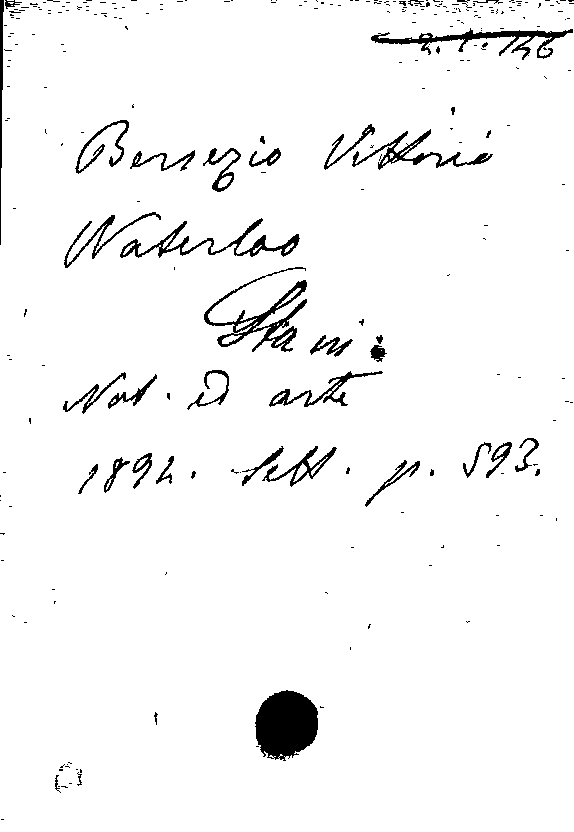 2. 1. 146
Bersezio Vittorio
Waterloo
Nat. ed arte
1892. Sett. p. 593.